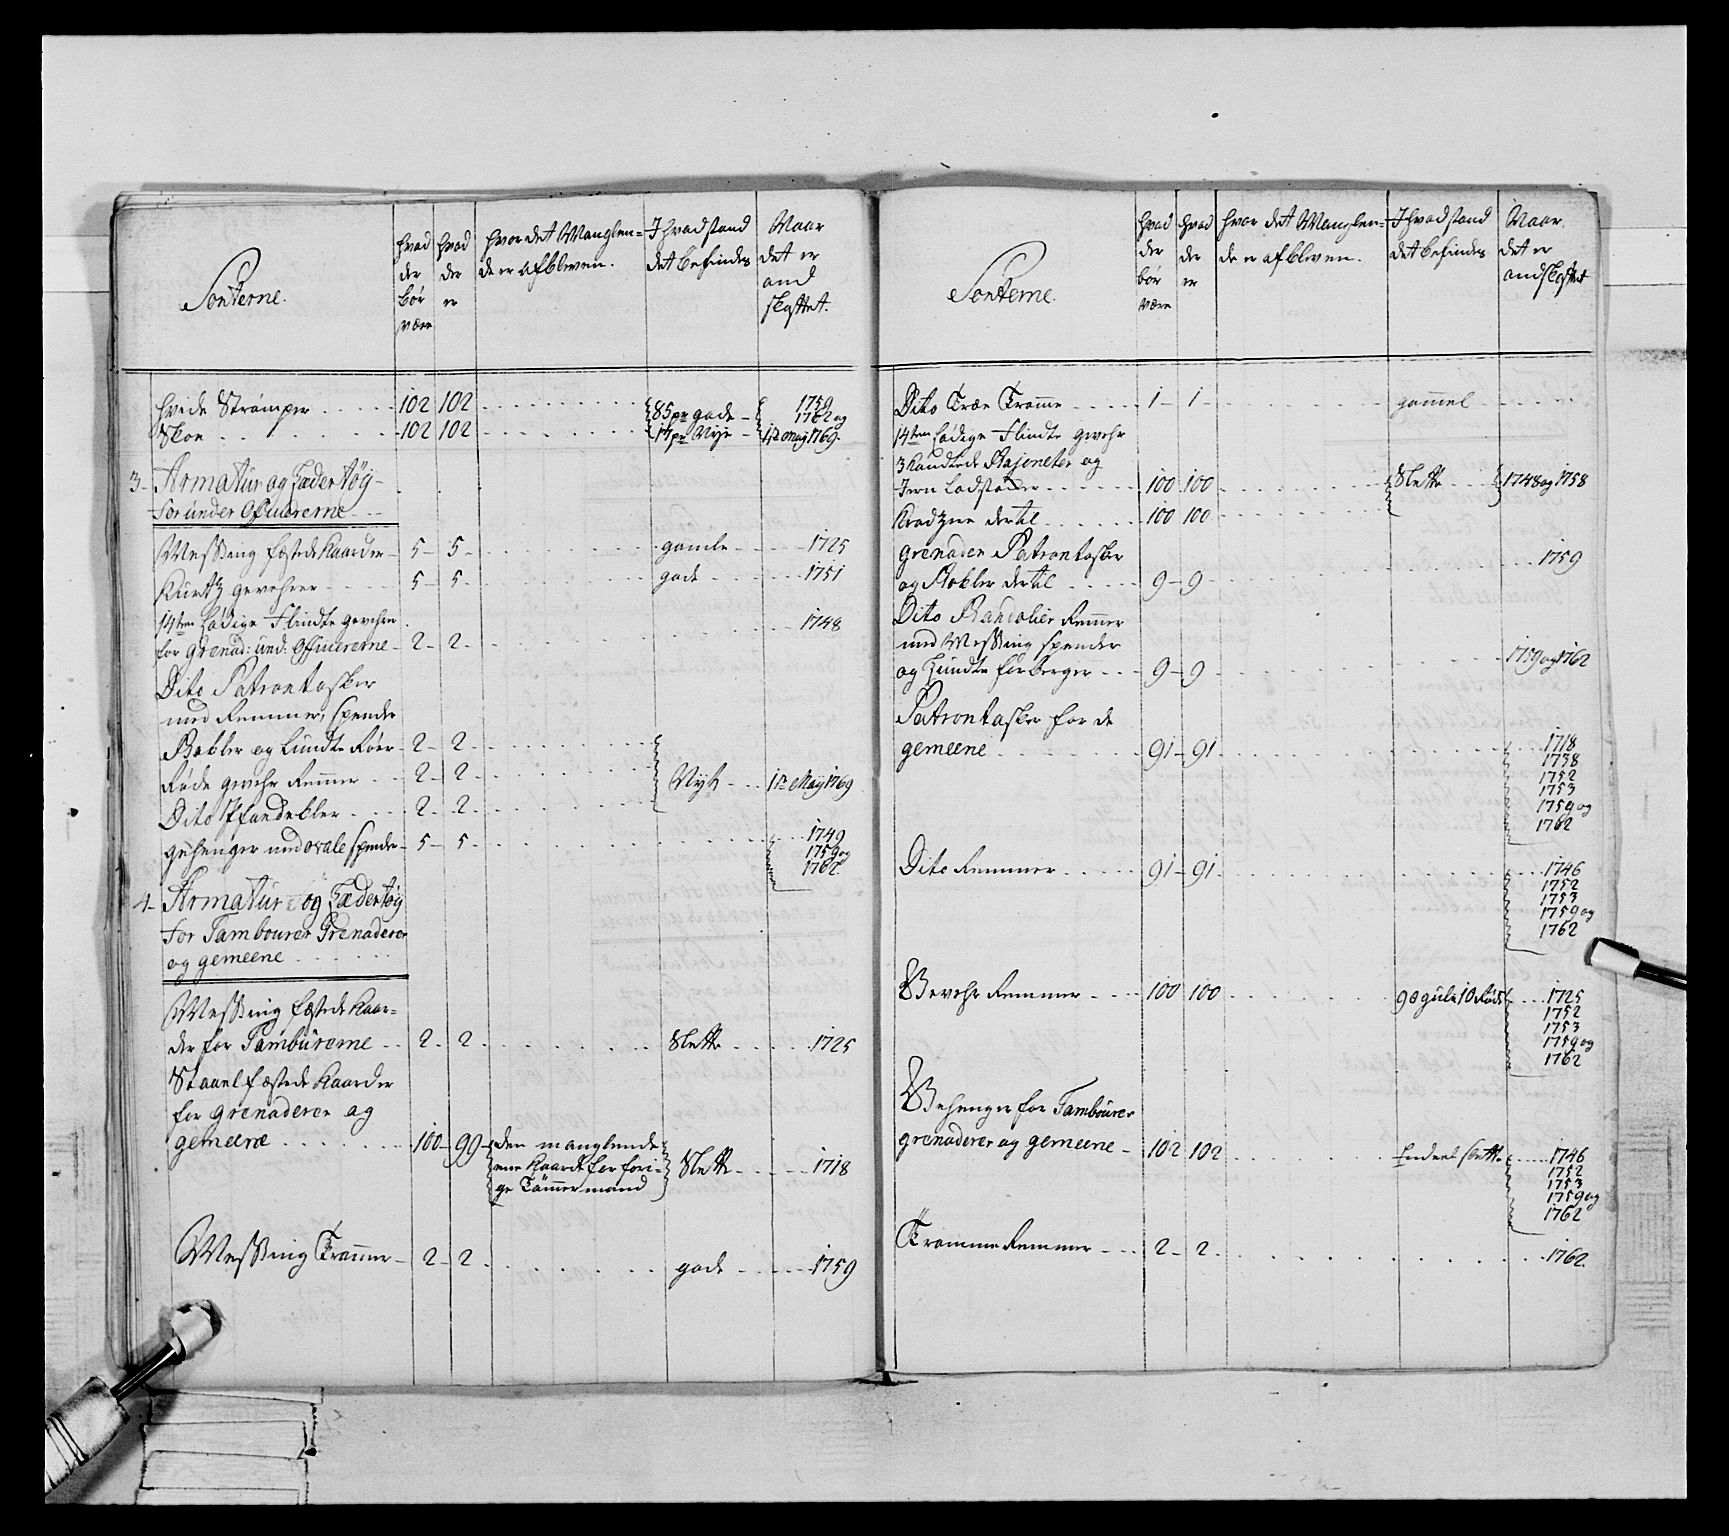 Sorterne.
hvad der bør være
hvad der er
hvor det Manglen=
de er afbleven.
I hvad stand
det befindes
Naar
det er
and
skaffet.
hvide Strømper 102 102
Skoe 102 102
85 pr gode 1759 1762 og
17 pr Nye 11te Maij 1769.
3- Armatur og Lædertøy
for under Officiererne
Messing fæstede Kaarder 5 5 gamle 1725
Kurtz gevehrer 5 5 gode 1751
14ten Lødige Flindte gevehre
for Grenad: und: Officiererne 2 2 1748
Dito Patrontasker
med Remmer, spender
Bøkler og Lundte Røer 2 2
Røde gevehr Remmer 2 2 Nyt 11te Maij 1769
Dito Pfandekler 2 2
gehenger med ovale spender 5 5 1749
1759 og
1762
4- Armatur og Lædertøy
for Tambourer Grenaderer
og gemeene
Messing fæstede Kaar=
der for Tambûrerne 2 2 Slette 1725
Staael fæstede Kaarder
for grenaderer og
gemeene 100 99 den manglende
ene Kaarde for fori=
ge Tømmermand
Slette 1718
Messing Trommer 2 2 gode 1759
Sorterne.
hvad der bør være
hvad der er
hvor det Manglen=
de er afbleven.
I hvad stand
det befindes
Naar
det er
andskaffet
Dito Træe Tromme 1 1 gammel
14ten Lødige Flindte gevehr
3 Kandtede Bajoneter og
Jern Ladstoker 100 100 Slette 1748 og 1758
Kradzere dertil 100 100
grenader Patrontasker
og Bøkler dertil 9 9 1759
Dito Bandolier Remmer
med Messing spender
og Lundte forberger 9 9 1759 og 1762
Patrontasker for de
gemeene 91 91 1718
1738
1752
1753
1759 og
1762
Dito Remmer 91 91 1746
1752
1753
1759 og
1762
Gevehr Remmer 100 100 90 gule 10 Røde 1725
1752
1753
1759 og
1762
Gehenger for Tambourer
grenaderer og gemeene 102 102 Endeel slette 1746
1752
1753
1759 og
1762
Tromme Remmer 2 2 1762.